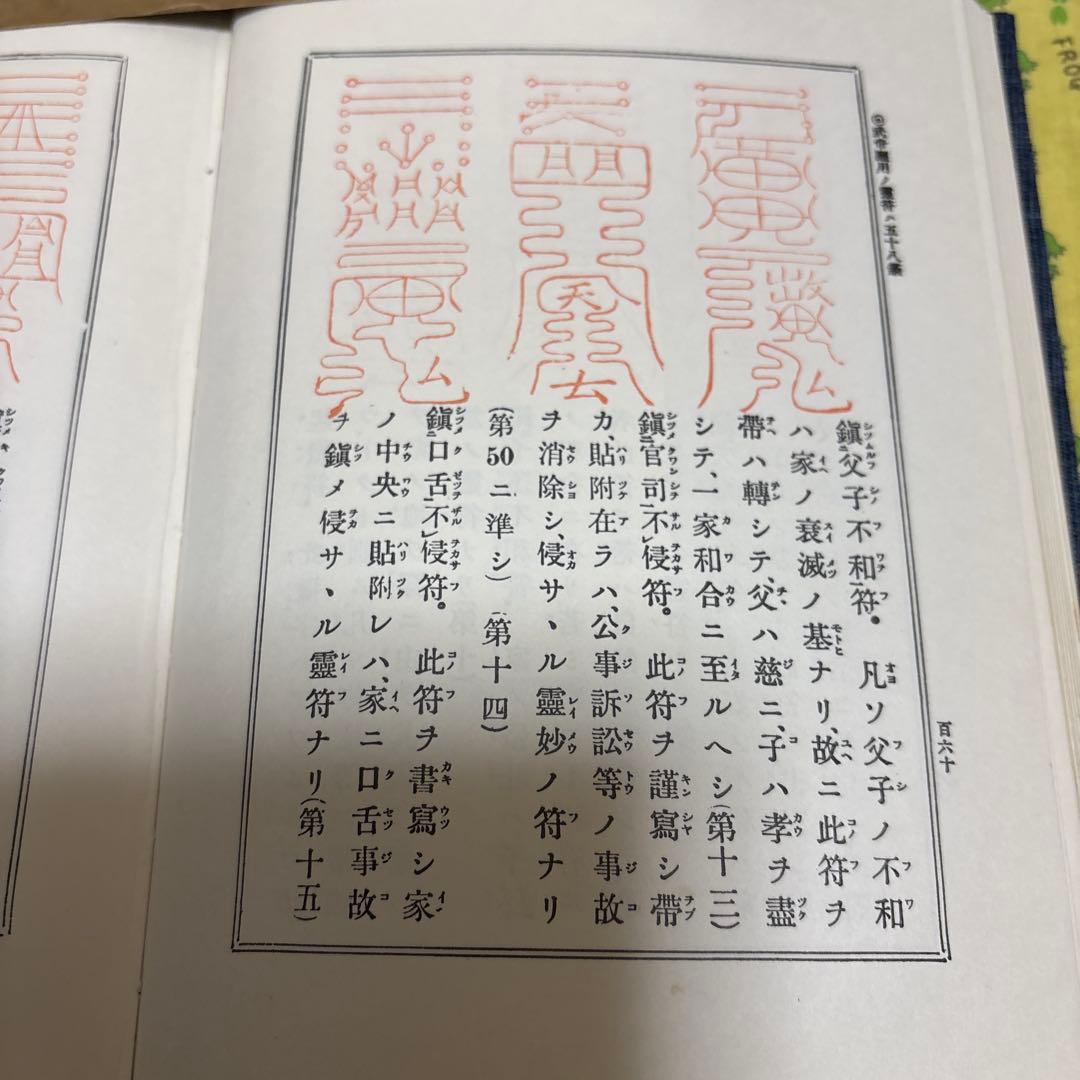 ◎武帝應用ノ靈符ハ五十八纂
百六十
鎭父子不和符。 凡ソ父子ノ不和
ハ家ノ衰滅ノ基ナリ、故ニ此符ヲ
帶ハ轉シテ、父ハ慈ニ、子ハ孝ヲ盡
シテ、一家和合ニ至ルヘシ(第十三)
鎭官司不侵符。 此符ヲ謹寫シ帶
カ、貼附在ラハ、公事訴訟等ノ事故
ヲ消除シ、侵サヽル靈妙ノ符ナリ
(第50ニ準シ)(第十四)
鎭口舌不侵符。 此符ヲ書寫シ家
ノ中央ニ貼附レハ、家ニ口舌事故
ヲ鎭メ侵サヽル靈符ナリ(第十五)